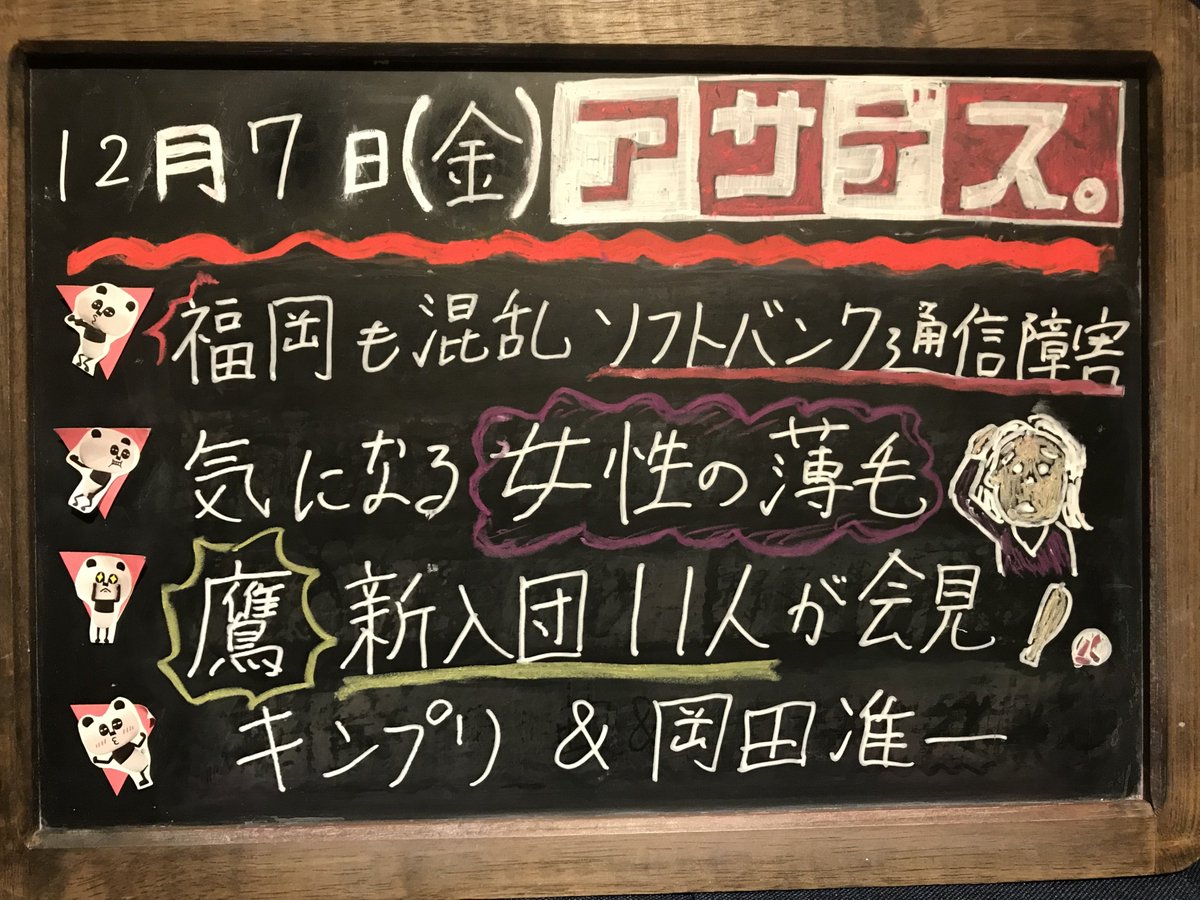 12月7日(金) アサデス。
福岡も混乱 ソフトバンク通信障害
気になる女性の薄毛
鷹 新入団11人が会見
キンプリ & 岡田准一